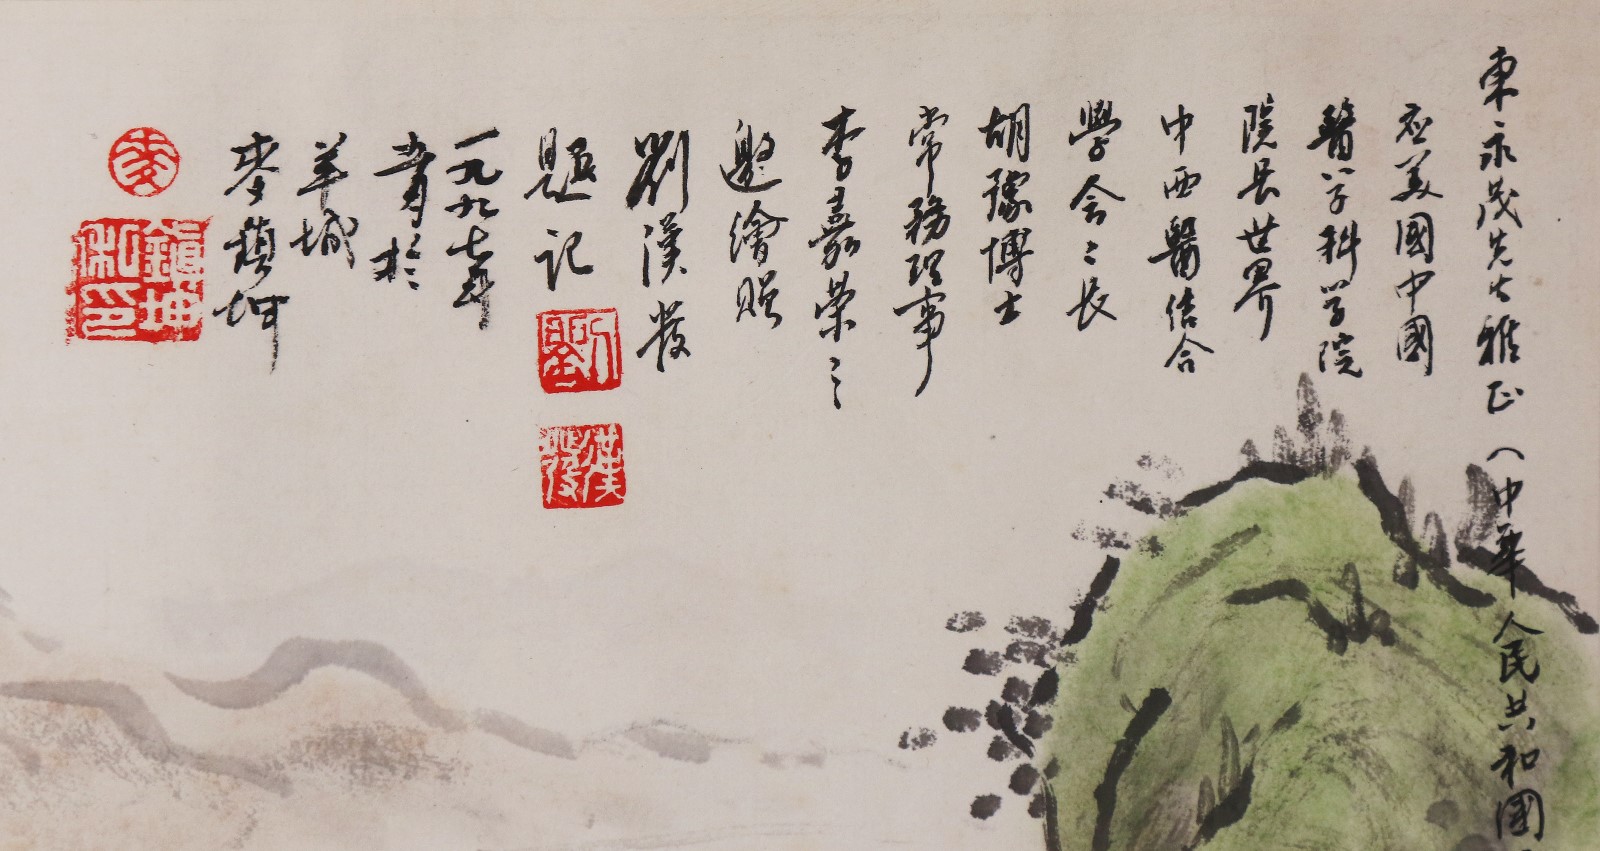 東永茂先生雅正（中華人民共和國
应美國中國
醫学科学院
院長世界
中西醫结合
學会之長
胡豫博士
常務理事
李嘉荣之
邀繪贈
劉漢发
題记
一九九七年
於
羊城
麥鎮坤
劉
漢
麥
鎮坤私印